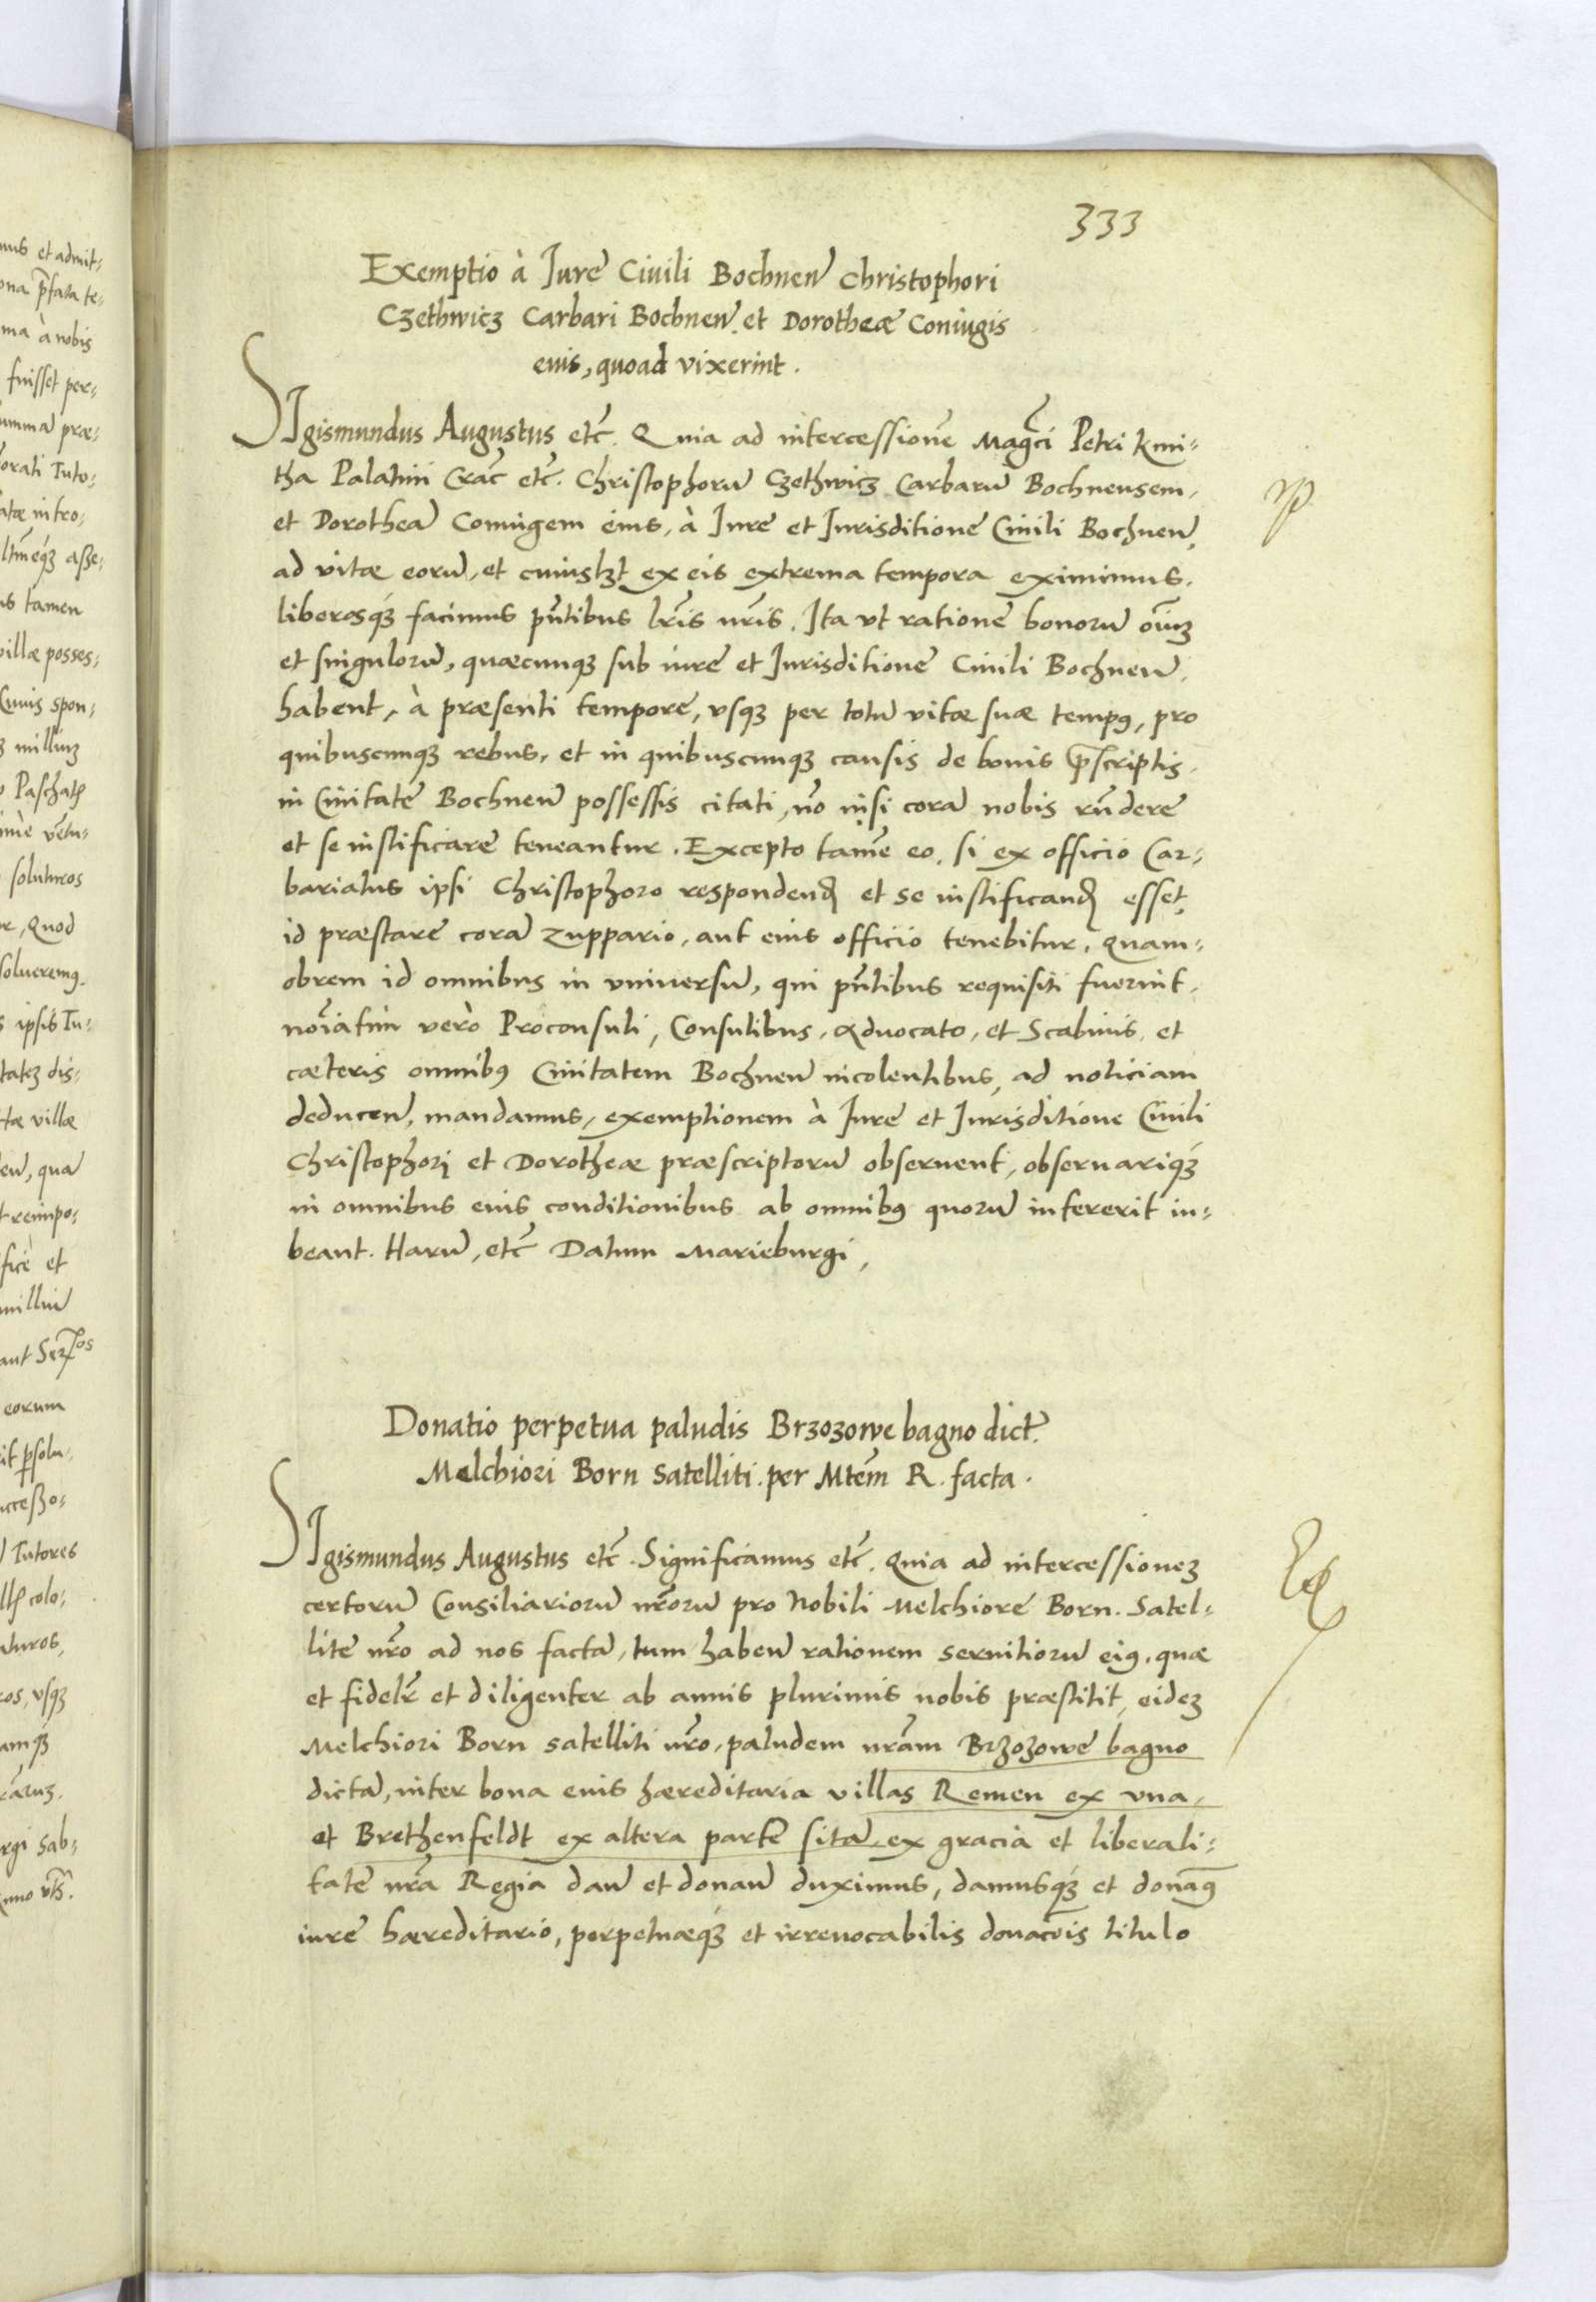 333
Exemptio à Iure Ciuili Bochneñ Christophori
Czethwicz Carbari Bochneñ. et Dorotheæ Coniugis
eius, quoad vixerint.
SIgismundus Augustus etc̃. Quia ad intercessionẽ Mag̃ci Petri Kmi-
tha Palatini Crac̃ etc̃. Christophorũ Czethwicz Carbarũ Bochnensem,
et Dorotheã Coniugem eius, à Iure et Iurisditione Ciuili Bochneñ,
ad vitæ eorũ, et cuiuslzt ex eis extrema tempora eximimus,
liberosq́ꝫ facimus pñtibus lr̃is nr̃is. Ita vt ratione bonorũ oĩuꝫ
et singulorũ, quæcunqꝫ sub iure et Iurisditione Ciuili Bochneñ.
habent, à præsenti tempore, vsqꝫ per totũ vitæ suæ tempꝰ, pro
quibuscunqꝫ rebus, et in quibuscunqꝫ causis de bonis p̃scriptis,
in Ciuitate Bochneñ possessis citati, nõ nisi corã nobis rñdere
et se iustificare teneantur. Excepto tamẽ eo, si ex officio Car-
bariatus ipsi Christophoro respondenđ et se iustificanđ esset,
id præstare corã Zuppario, aut eius officio tenebitur. Quam-
obrem id omnibus in vniuersũ, qui pñtibus requisiti fuerint,
noĩatim verò Proconsuli, Consulibus, Aduocato, et Scabinis, et
cæteris omnibꝰ Ciuitatem Bochneñ incolentibus, ad noticiam
deduceñ, mandamus, exemptionem à Iure et Iurisditione Ciuili
Christophori et Dorotheæ præscriptorũ obseruent, obseruariq́ꝫ
in omnibus eius conditionibus ab omnibꝰ quorũ intererit iu-
beant. Harũ, etc̃ Datum Marieburgi,
Donatio perpetua paludis Brzozowe bagno dict̃.
Melchiori Born satelliti per Mtem̃ R. facta.
SIgismundus Augustus etc̃. Significamus etc̃. Quia ad intercessioneꝫ
certorũ Consiliariorũ nr̃orũ pro Nobili Melchiore Born. Satel-
lite nr̃o ad nos factã, tum habeñ rationem seruitiorũ eiꝰ, quæ
et fidelr̃ et diligenter ab annis plurimis nobis præstitit, eideꝫ
Melchiori Born satelliti nr̃o, paludem nr̃am Brzozowe bagno
dictã, inter bona eius hæreditaria villas Remen ex vna,
et Brethenfeldt ex altera parte sitã, ex gracia et liberali-
tate nr̃a Regia dañ et donañ duximus, damusq́ꝫ et donamꝰ
iure hæreditario, perpetuæq́ꝫ et irreuocabilis donac̃ois titulo